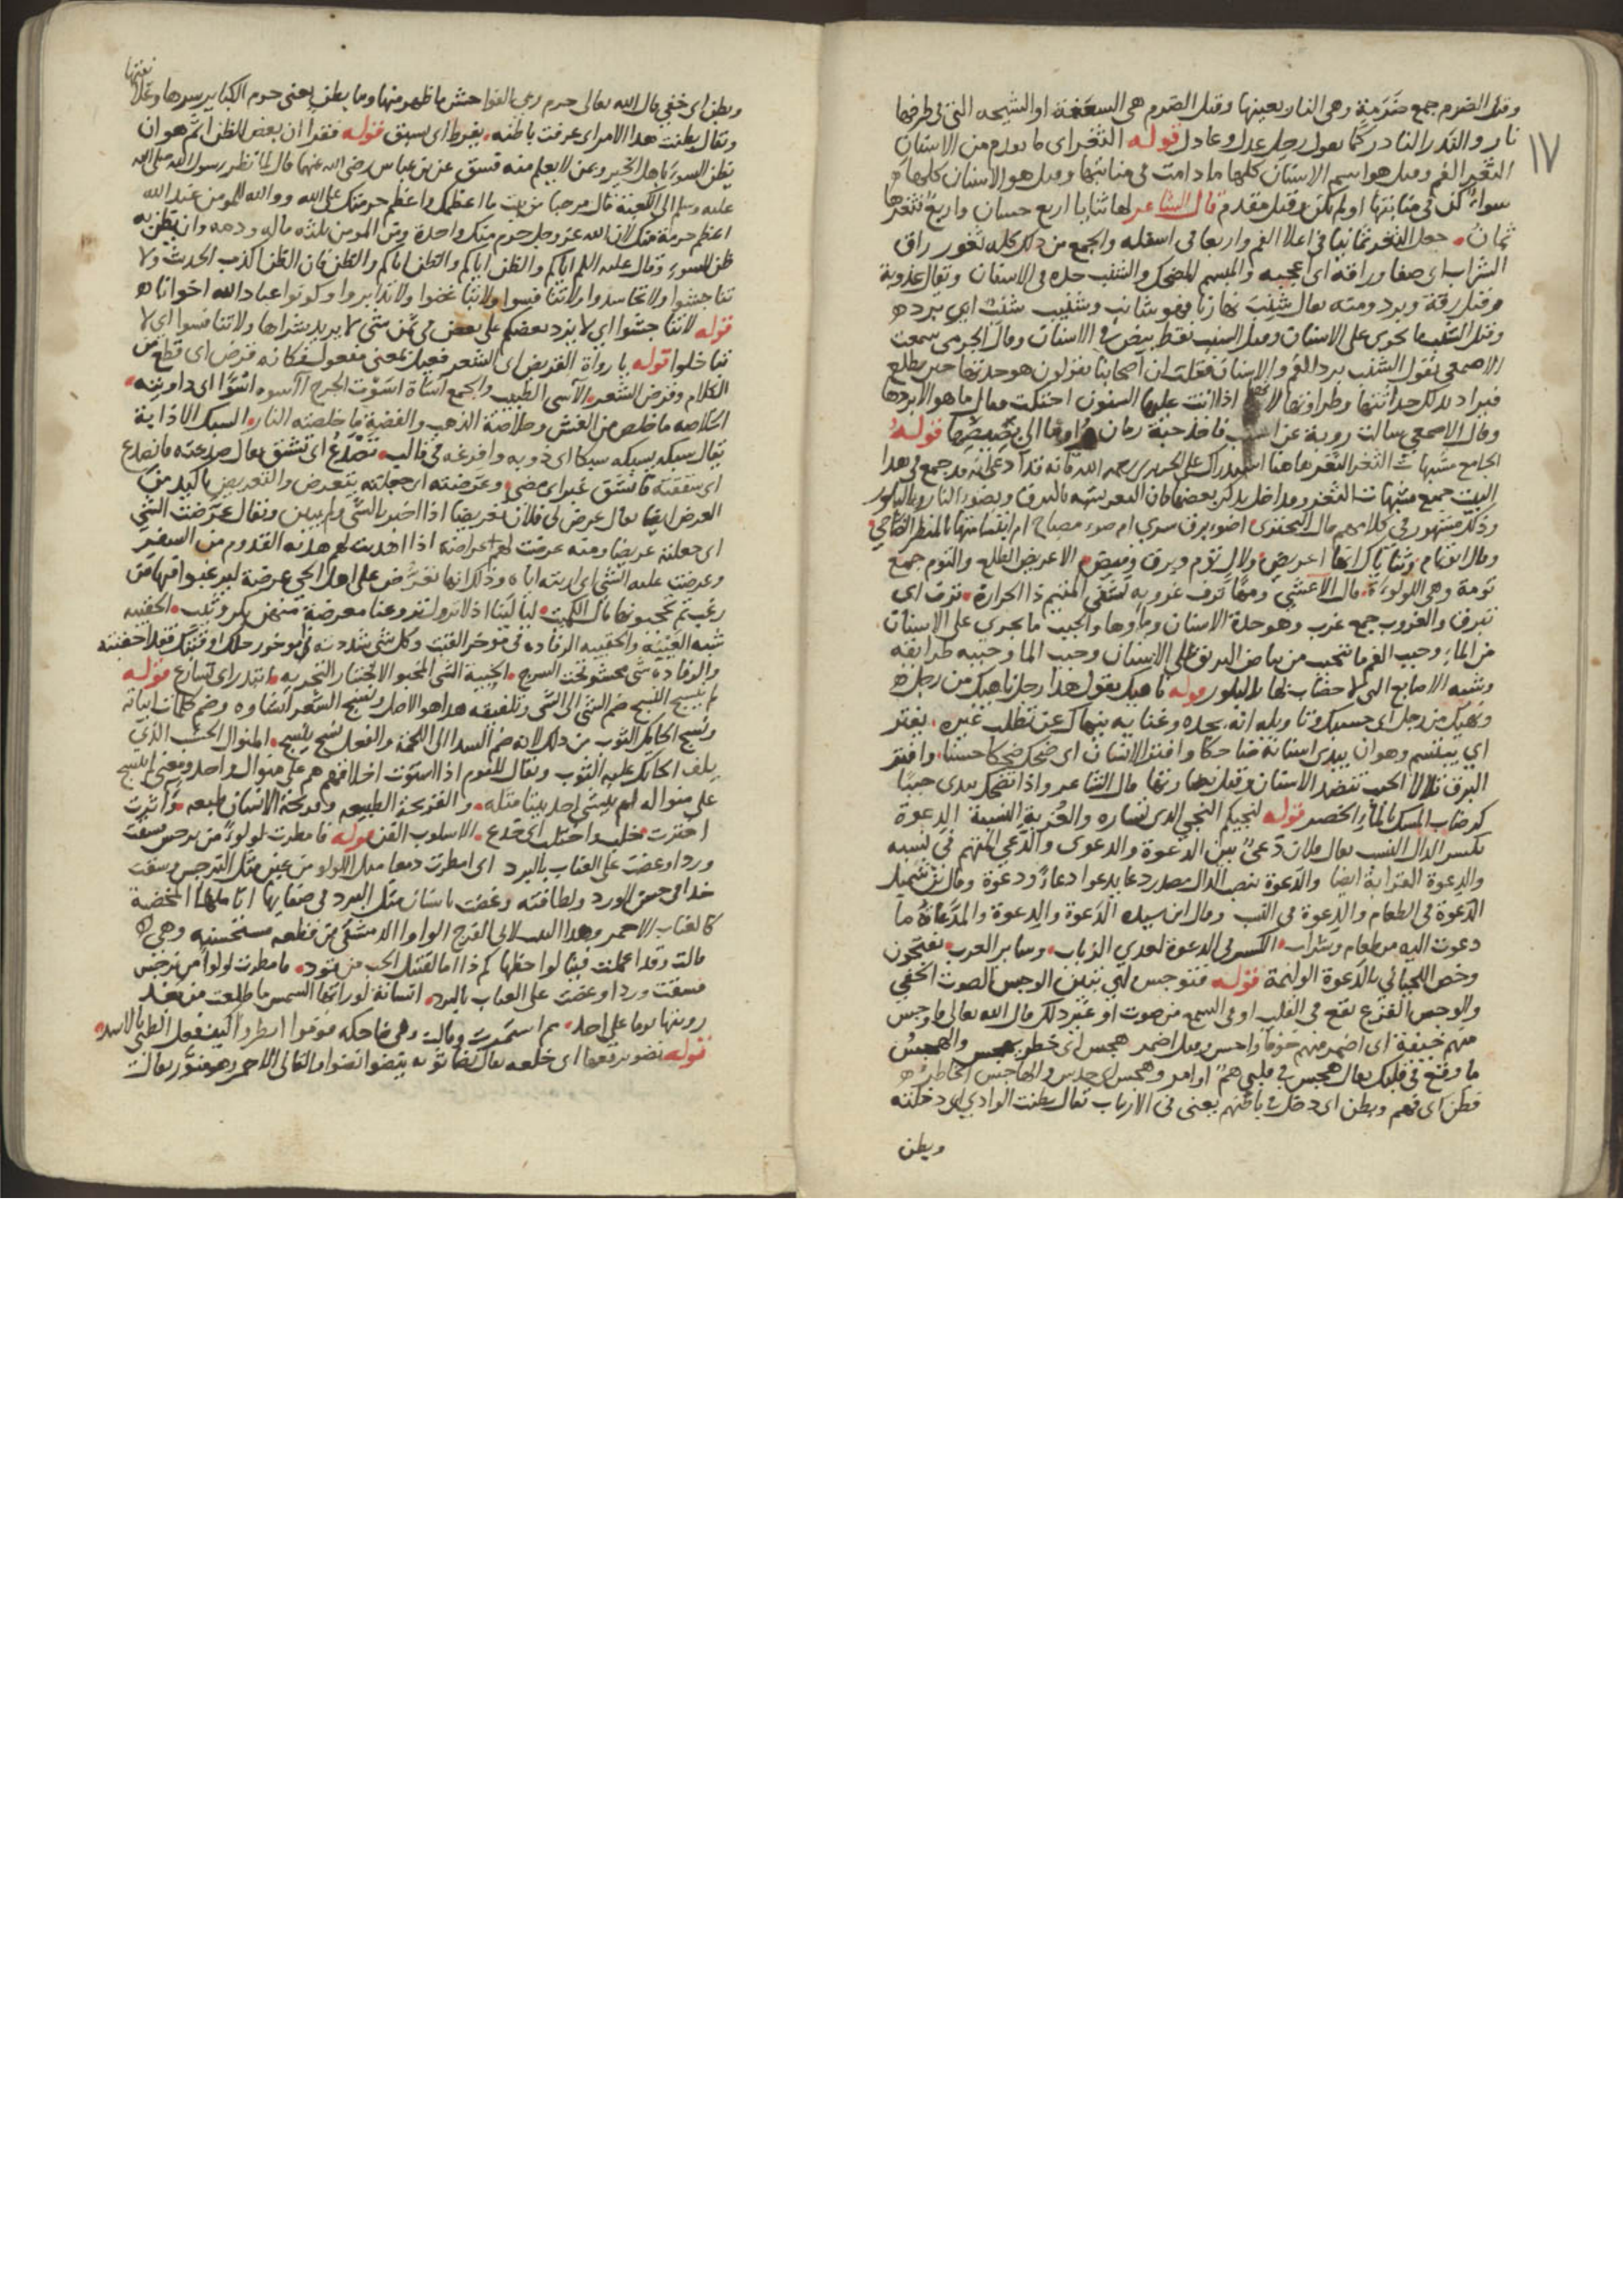 ١٧
وقيل الضرم جمع ضرمة وهي النار بعينها وقيل الضرم هي السعفة او الشيحه التي في طرفها
نار والندر النادر كما يقول رجل عدل وعادل قوله الثغر اي ما يقدم من الاسنان
الثغر الفم وقيل هو اسم الاسنان كلها ما دامت في منابتها وقيل هو الاسنان كلها
سواء كن في منابتها او لم تكن وقيل مقدم قال الشاعر لها ثنايا اربع حسان واربع فثغرها
ثمان جعل الثغر ثمانيا في اعلا الفم واربعا في اسفله والجمع من ذلك كله ثغور راق
الشراب اي صفا وراقه اي اعجبه والمبسم المضحك والشنب حده في الاسنان ويقال عذوبة
وقيل رقة وبرد ومنه يقال شنب نهارنا فهو شانب وشنيب شنب اي برد
وقيل الشنب ما يجري على الاسنان وقيل الشنب نقط بيض في الاسنان وقال الجرمي سمعت
الاصمعي يقول الشنب برد الفم والاسنان فقلت ان اصحابنا يقولون هو حدتها حين يطلع
فيراد بذلك حداثتها وطراوتها لانها اذا اتت عليها السنون احتكت فقال ما هو الا بردها
وقال الاصمعي سالت روبة عن الشنب فاخذ حبة رمان واومأ الى بصيصها قوله
الجامع مشبهات الثغر الثغر هاهنا استدراك على الحريري رحمه الله فانه قد ادعى انه قد جمع في هذا
البيت جميع مشبهات الثغر وقد اخل بذكر بعضها فان الثغر يشبه بالبرق وبضوء النار وبالبلور
وذلك مشهور في كلامهم قال البحتري اضوء برق سري ام ضوء مصباح ام ابتسامتها بالمنظر الضاحي
وقال ابو تمام وثناياك انها اغريض ولال توم وبرق وميض الاغريض الطلع والتوم جمع
تومة وهي اللولوءة قال الاعشي ومها ترف غروبه تشفي المتيم ذا الحرارة ترف اي
تبرق والغروب جمع غرب وهو حدة الاسنان وماوها والحبب ما يجري على الاسنان
من الماء وحبب الفم ما يتحبب من بياض الريق على الاسنان وحبب الما وحببه طرائقه
وشبه الاصابع التي لا خضاب لها بالبلور قوله ناهيك يقول هذا رجل ناهيك من رجل
ونهيك من رجل اي حسبك وتاويله انه بجده وغنايه ينهاك عن تطلب غيره يفتر
اي يبتسم وهو ان يبدي اسنانه ضاحكا وافتر الانسان اي ضحك ضحكا حسنا وافتر
البرق تلالا الحبب تنضد الاسنان وقيل بهاونها قال الشاعر واذا تضحك تبدي حببا
كرضاب المسك بالماء الخصر قوله لنجيكم النجي الذي تشاره والغربة النسبة الدعوة
بكسر الدال النسب يقال فلان دعي بين الدعوة والدعوى والدعي المتهم في نسبه
والدعوة القرابة ايضا والدعوة بنصب الدال مصدر دعا يدعوا دعاء ودعوة وقال بن شميل
الدعوة في الطعام والدعوة في النسب وقال ابن سيده الدعوة والدعوة والمدعاة ما
دعوت اليه من طعام وشراب الكسر في الدعوة لعدي الرباب وساير العرب يفتحون
وخص اللحياني بالدعوة الوليمة قوله فتوجس لي يتبين الوجس الصوت الخفي
والوجس الفزع يقع في القلب او في السمع من صوت او غير ذلك قال الله تعالى فاوجس
منهم خيفة اي اضمر منهم خوفا واحس وقيل اضمر هجس اي خطر والهجس
ما وقع في قلبك يقال هجس في قلبي هم او امر وهجس اي حدس والهاجس الخاطر
فطن اي فهم وبطن اي دخل في باطنهم يعني في الارباب تقال بطنت الوادي اي دخلته
وبطن
وبطن اي خفي قال الله تعالى حرم ربي الفواحش ما ظهر منها وما بطن يعني حرم الكباير سرها وعلا
نيتها
وتقال بطنت هذا الامر اي عرفت باطنه يفرط اي يسبق قوله فقرا ان بعض الظن اثم هو ان
تظن السوء باهل الخير وعن لا يعلم منه فسق عن بن عباس رضي الله عنهما قال لما نظر رسول الله صلى الله
عليه وسلم الى الكعبة قال مرحبا من بيت ما اعظمك واعظم حرمتك على الله ووالله للمومن عند الله
اعظم حرمة منك لان الله عز وجل حرم منك واحدة ومن المومن ثلثه ماله ودمه وان يظن به
ظن السوء وقال عليه السلم اياكم والظن اياكم والظن اياكم والظن فان الظن اكذب الحديث ولا
تناجشوا ولا تحاسدوا ولا تنافسوا ولا تباغضوا ولا تدابروا وكونوا عباد الله اخوانا
قوله لا تناجشوا اي لا يزد بعضكم على بعض في ثمن شي لا يريد شراها ولا تنافسوا اي لا
تباخلوا قوله يا رواة القريض اي الشعر فعيل بمعنى مفعول فكانه قرض اي قطع من
الكلام وقرض الشعر الآسي الطبيب والجمع اساة اسوت الجرح آسوه اسوا اي داويته
الخلاصه ما خلص من الغش وخلاصة الذهب والفضة ما خلصته النار السبك الاذابة
يقال سبكه يسبكه سبكا اي ذوبه وافرغه في قالب تصدع اي تنشق يقال صدعته فانصدع
اي شققته فانشق غبر اي مضى وعرضته اي جعلته يتعرض والتعريض باكيد من
العرض ايضا يقال عرض لي فلان تعريضا اذا اخبر بالشي ولم يبين وتقال عرضت الشي
اي جعلته عريضا ومنه عرضت لهم عراضة اذا اهديت لهم هدية القدوم من السفر
وعرضت عليه الشي اي اريته اياه وذلك انها تعرض على اهل الحي عرضة ليرغبوا فيها من
رغب ثم تحجبونها قال الكميت ليالينا اذ لا تزول تروعنا معرضة منهن بكر وثيب الحقيبه
شبه العيبة والحقيبه الرفاده في موخر القتب وكل شي شددته في موخر رحلك او قتبك فقد احتقبته
والرفادة شي محشو تحت السرج الخبية الشي المخبو الاختبار التجربه ابتدر اي تسارع قوله
لم ينسج النسج ضم الشي الى الشي وتلفيقه هذا هو الاصل ونسج الشعر انشاوه وضم كلمات ابياته
ونسج الحايك الثوب من ذلك لانه ضم السدا الى اللحمة والفعل نسج ينسج المنوال الخشب الذي
يلف الحايك عليه الثوب ويقال للقوم اذا استوت اخلاقهم هم على منوال واحد ومعنى لم ينسج
على منواله لم ينشي احد بيتا مثله والقريحة الطبيعه وقريحة الانسان طبعه وآثرت
اخترت خلب واختلب اي خدع الاسلوب الفن قوله فامطرت لولوءا من نرجس وسقت
وردا وعضت على العناب بالبرد اي امطرت دمعا مثل اللولو من عين مثل النرجس وسقت
خدا في حسن الورد ولطافته وعضت باسنان مثل البرد في صفايها انا ملها المخضبة
كالعناب الاحمر وهذا البيت لابي الفرج الواوا الدمشقي من قطعه مستحسنه وهي
قالت وقد اعملت فينا لواحظها كم ذا اما لقتيل الحب من قود فامطرت لولوا من نرجس
فسقت وردا وعضت على العناب بالبرد انسانة لو راتها الشمس ما طلعت من بعد
رويتها يوما على احد ثم استمرت وقالت وهي ضاحكه قوموا انظروا كيف فعل الظبي بالاسد
قوله نضو برقعها اي خلعه يقال نضا ثوبه ينضوا نضوا والقاني الاحمر وهو منور يقال